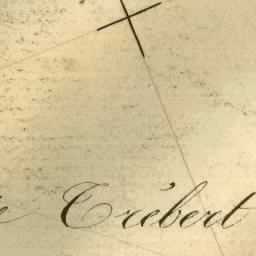 e Trébert